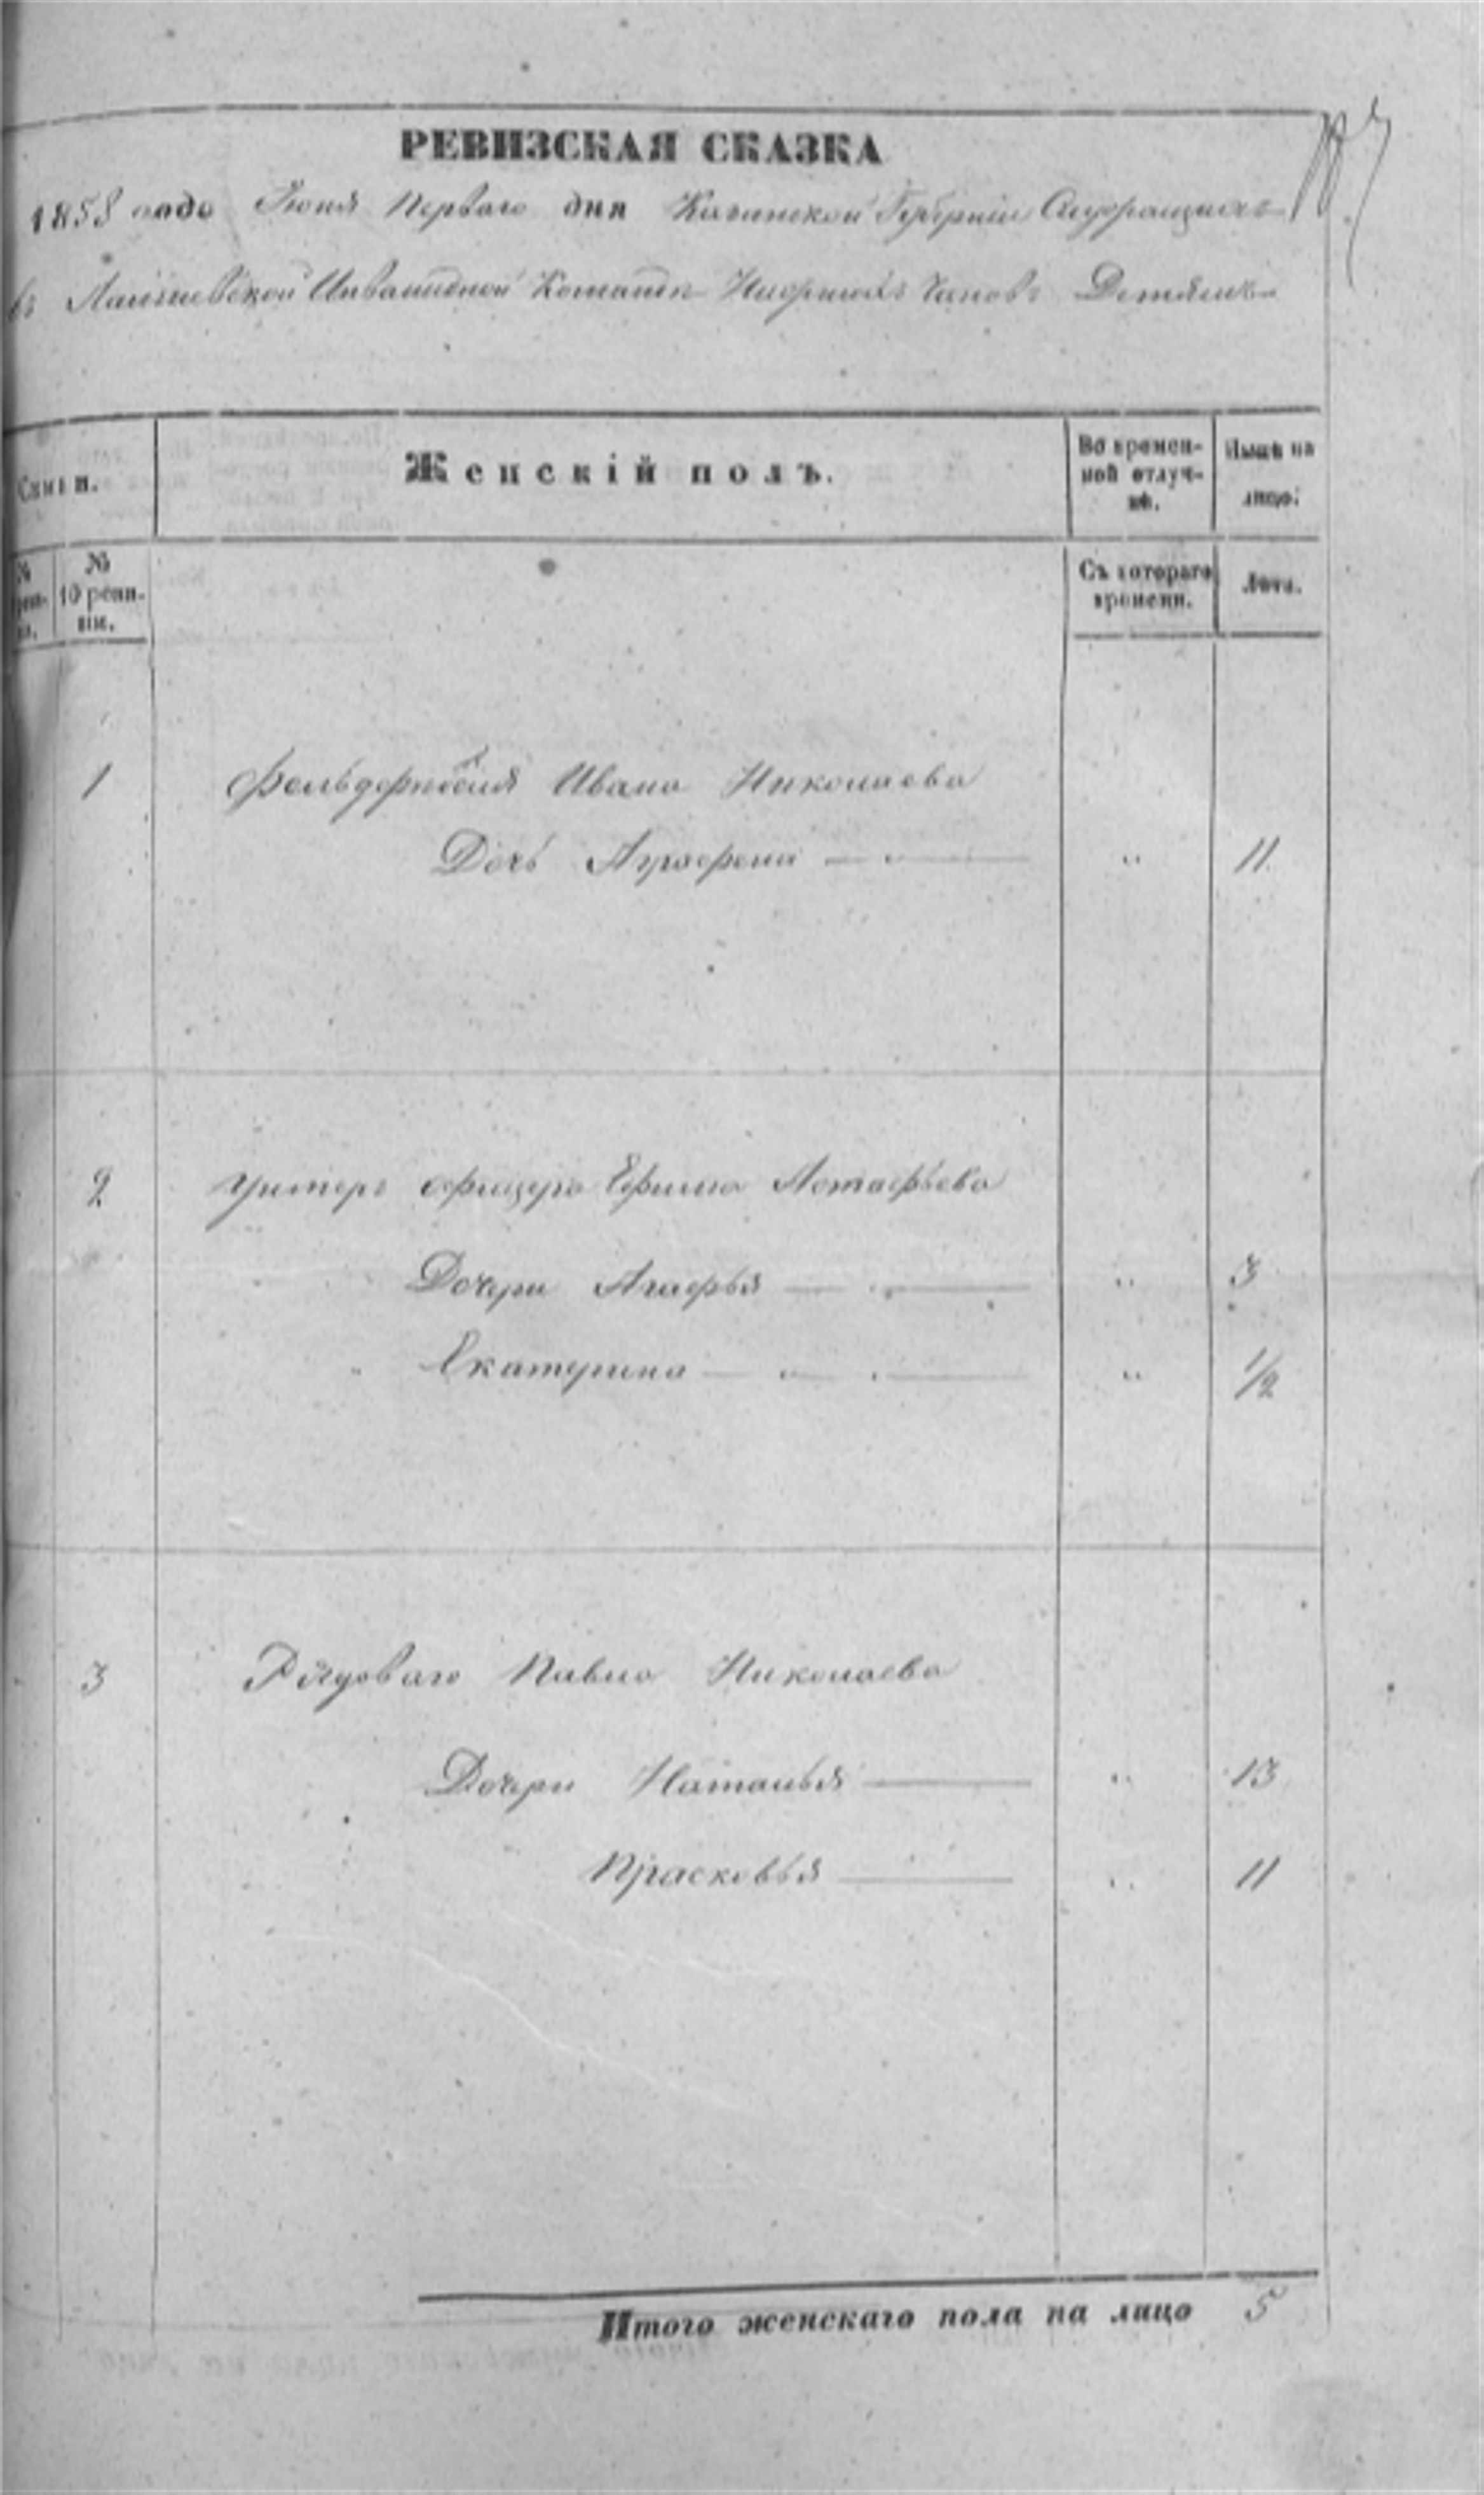 РЕВИЗСКАЯ СКАЗКА
1858 года Іюня Перваго дня Казанской Губерніи Служащихъ
въ Лаишевской Инвалидной Командѣ Нижнихъ Чиновъ Дѣтямъ
Семьи.
Женскій полъ.
Во времен-
ной отлуч-
кѣ.
Нынѣ на
лицо.
№
10 реви-
зіи.
Съ котораго
времени.
Лѣта.
1 Фельдфебеля Ивана Николаева
Дочь Аграфена " 11
2 Унтеръ офицера Ефима Астафьева
Дочери Агафья " 3
Екатерина " 1/2
3 Рядоваго Павла Николаева
Дочери Наталья " 13
Прасковья " 11
Итого женскаго пола на лицо 5